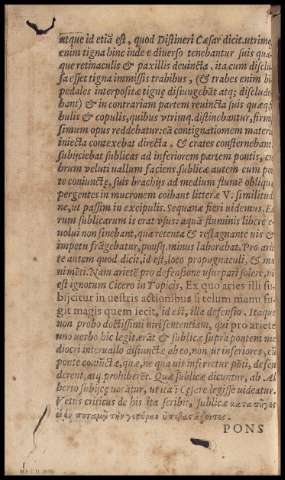 atque id etiã est, quod Distineri Cæsar dicit. utrinq;
enim tigna hinc inde e diuerso tenebantur suis quæ-
que retinaculis & paxillis deuincta, ita cum disclu-
sa esset tigna immissis trabibus, (& trabes enim bi-
pedales interpositæ tigna disiungebãt atq; disclude-
bant) & in contrariam partem reuincta suis quæq; fi-
bulis & copulis, quibus vtrimq. distinebantur, firmis-
simum opus reddebatur: eã contignationem materia
iniecta contexebat directa, & crates consternebant.
subijciebat sublicas ad inferiorem partem pontis, cru-
brum veluti vallum faciens. sublicæ autem cum pon-
te coniunctæ, suis brachijs ad medium flumẽ oblique
pergentes in mucronem coibant litteræ V: similitudi-
ne, ut passim in excipulis. Sequanæ fieri uidemus. Ea-
rum sublicarum is erat vsus: aquã fluminis libere e-
uolui non sinebant, quæ retenta & restagnante uis &
impetu frãgebatur, pontiq. minus laborabat. Pro arie-
te autem quod dicit, id est, loco propugnaculi, & mu-
nimẽti. Nam arietẽ pro defensione usurpari solere, nõ
est ignotum Cicero in Topicis, Ex quo aries illi su-
bijcitur in uestris actionibus si telum manu fu-
git magis quem iecit, id est, illæ defensio. Itaque
non probo doctissimi uiri sententiam, qui pro ariete
uno uerbo hic legit. erãt & sublicæ supra pontem me-
diocri interuallo distinctæ ab eo, non ut inferiores, cũ
ponte coniunctæ, quæ, ne qua uis inferretur põti, defen-
derent, atq. prohiberẽt. Quæ sublicæ dicuntur, ab Al-
berto subijces uocãtur, utica: Legere legisse uideatur.
Vetus criticus de his ita scribit, sublicæ κατὰ πῆγος
PONS